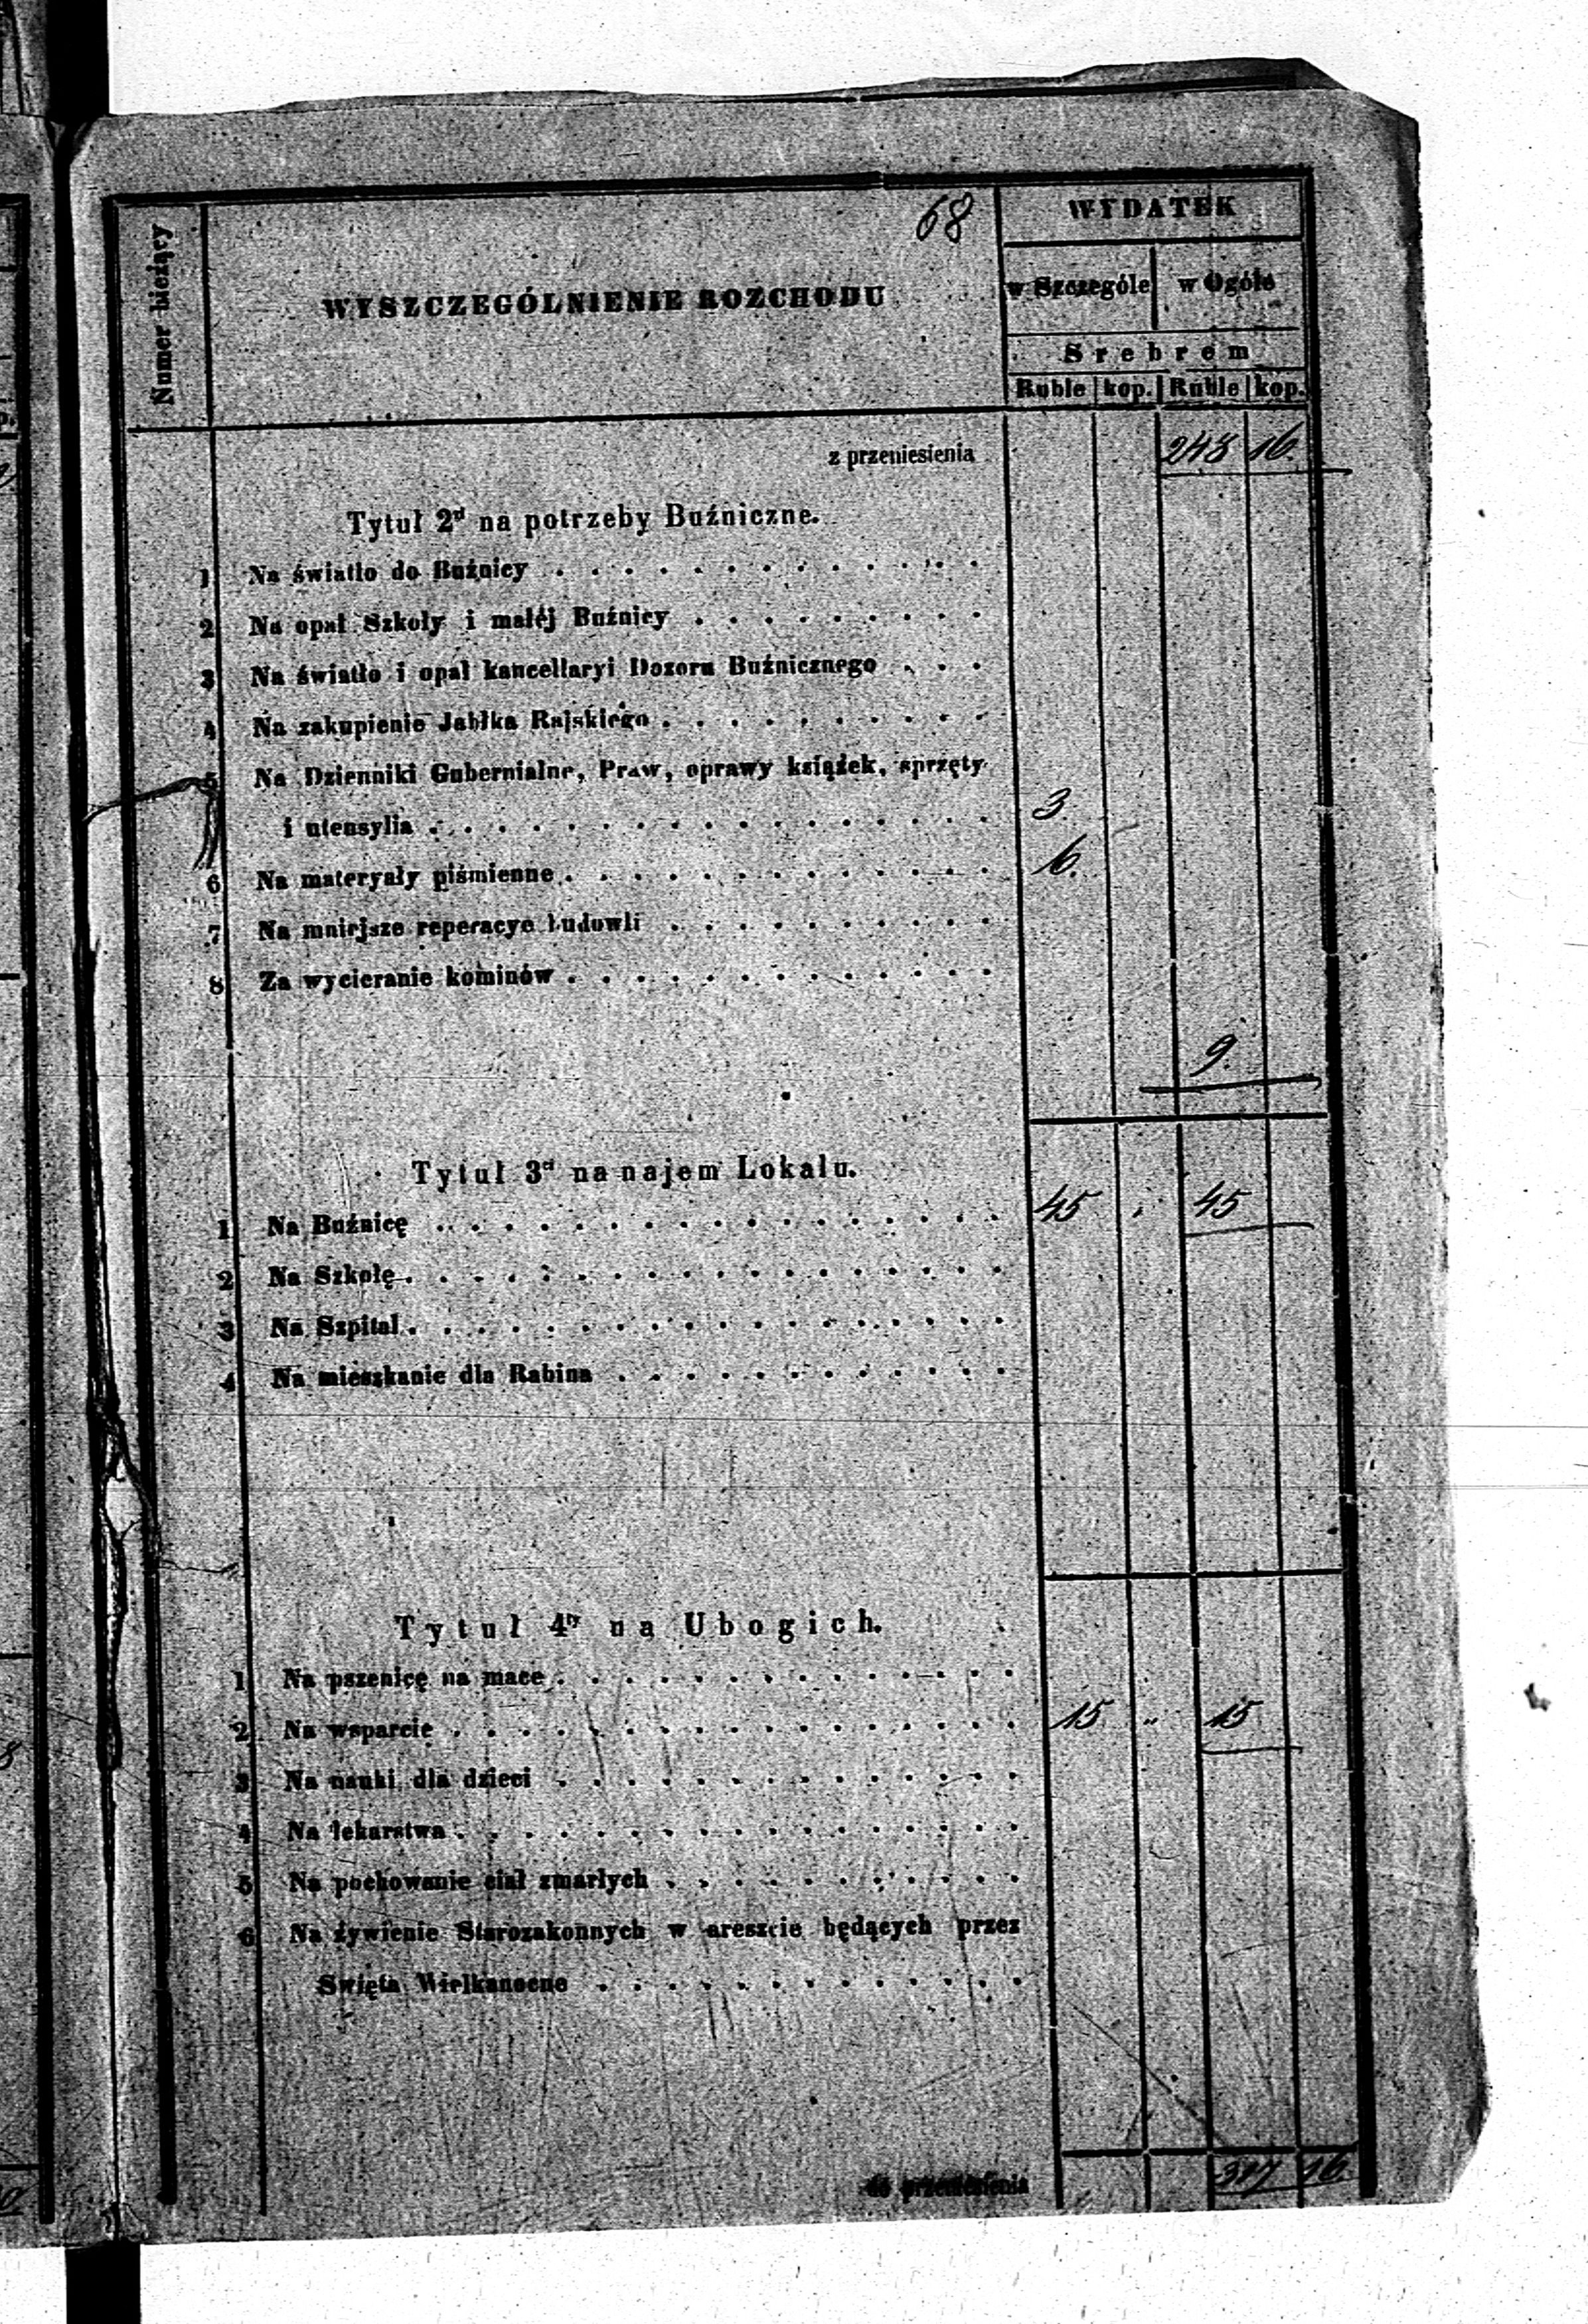 68
WYDATEK
Numer bieżący
WYSZCZEGÓLNIENIE ROZCHODU
w Szczególe w Ogóle
Srebrem
Ruble kop. Ruble kop.
z przeniesienia 248 16.
Tytuł 2d na potrzeby Buźniczne.
1 Na światło do Buźnicy
2 Na opał Szkoły i małéj Buźnicy
3 Na światło i opał kancellaryi Dozoru Buźnicznego
4 Na zakupienie Jabłka Rajskiego
5 Na Dzienniki Gubernialne, Praw, oprawy książek, sprzęty
i utensylia 3.
6 Na materyały piśmienne 6.
7 Na mniejsze reperacye budowli
8 Za wycieranie kominów
9.
Tytuł 3ci na najem Lokalu.
1 Na Buźnicę 45 45
2 Na Szkołę
3 Na Szpital
4 Na mieszkanie dla Rabina
Tytuł 4ty na Ubogich.
1 Na pszenicę na mace
2 Na wsparcie 15 " 15
3 Na nauki dla dzieci
4 Na lekarstwa
5 Na pochowanie ciał zmarłych
6 Na żywienie Starozakonnych w areszcie będących przez
Święta Wielkanocne
do przeniesienia 317 16.